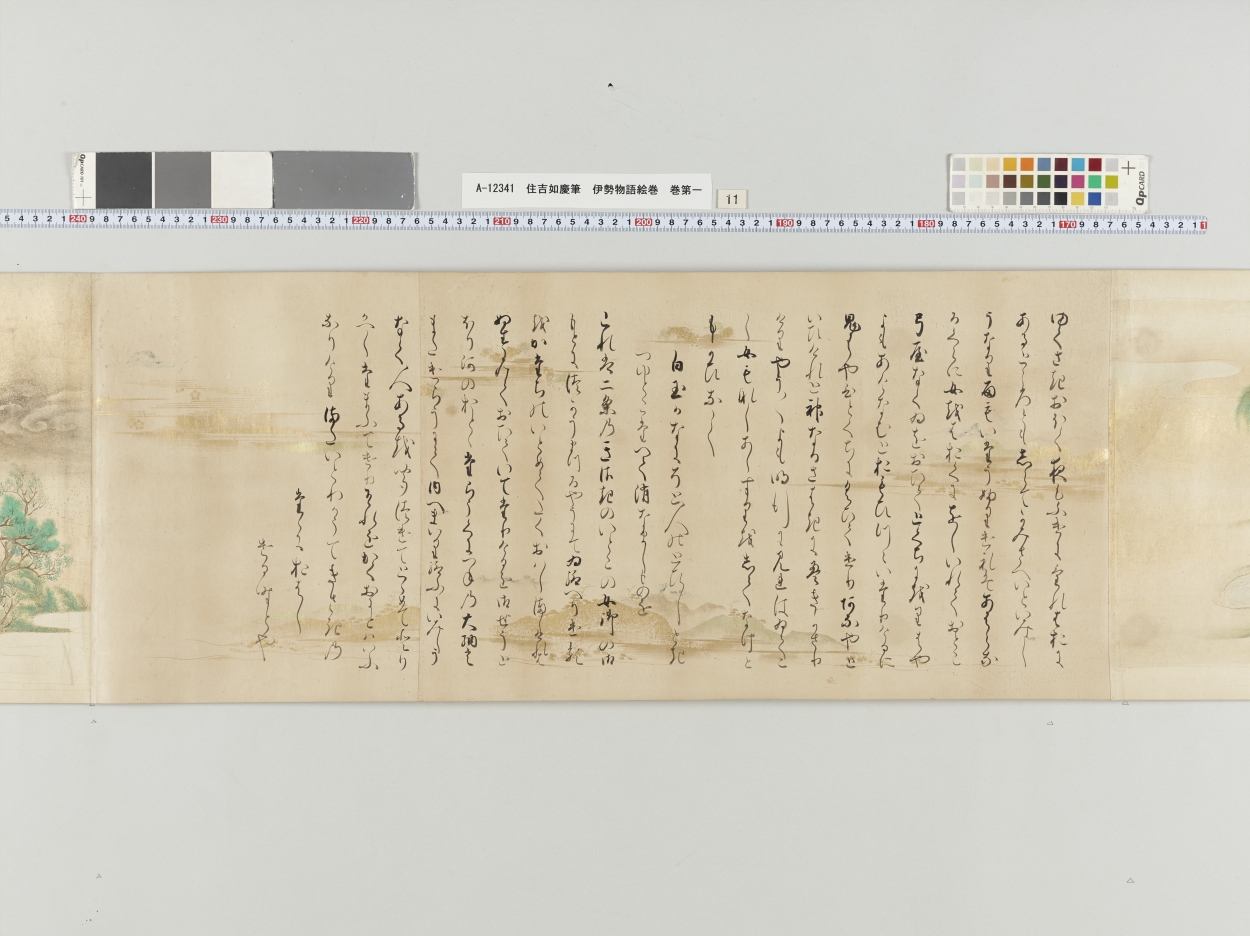 A-12341 住吉如慶筆 伊勢物語絵巻 巻第一
11
ゆくさきおほく夜もふけにけれはおに
あるところともしらてかみさへいといみし
うなり雨もいたうふりけれはあはらな
るくらに女をはおくにおしいれておとこ
弓屋なくゐをおひてとくちにをりはや
よもあけなむとおもひつゝいたりけるに
鬼はや一くちにくひてけりあなやと
いひけれと神なるさはきにえきかさり
けりやう〳〵よも明行に見れはゐてこ
し女もなしあしすりをしてなけと
もかひなし
白玉かなにそと人のとひしとき
つゆとこたへて消なましものを
これは二条のきさきのいとこの女御の御
もとにつかうまつるやうにてゐ給へりける
をかたちのいとめてたくおはしけれは
ぬすみておひていてたりけるを御せうと
ほり河のおとゝたらうくにつねの大納言
またけらうにて内へまいり給ふにいみしう
なく人あるをきゝつけてとゝめてとり
かへしたまふてけりそれをかくおにとはいふ
なりけりまたいとわかうてきさきの
たゝにおはし
ける時とや